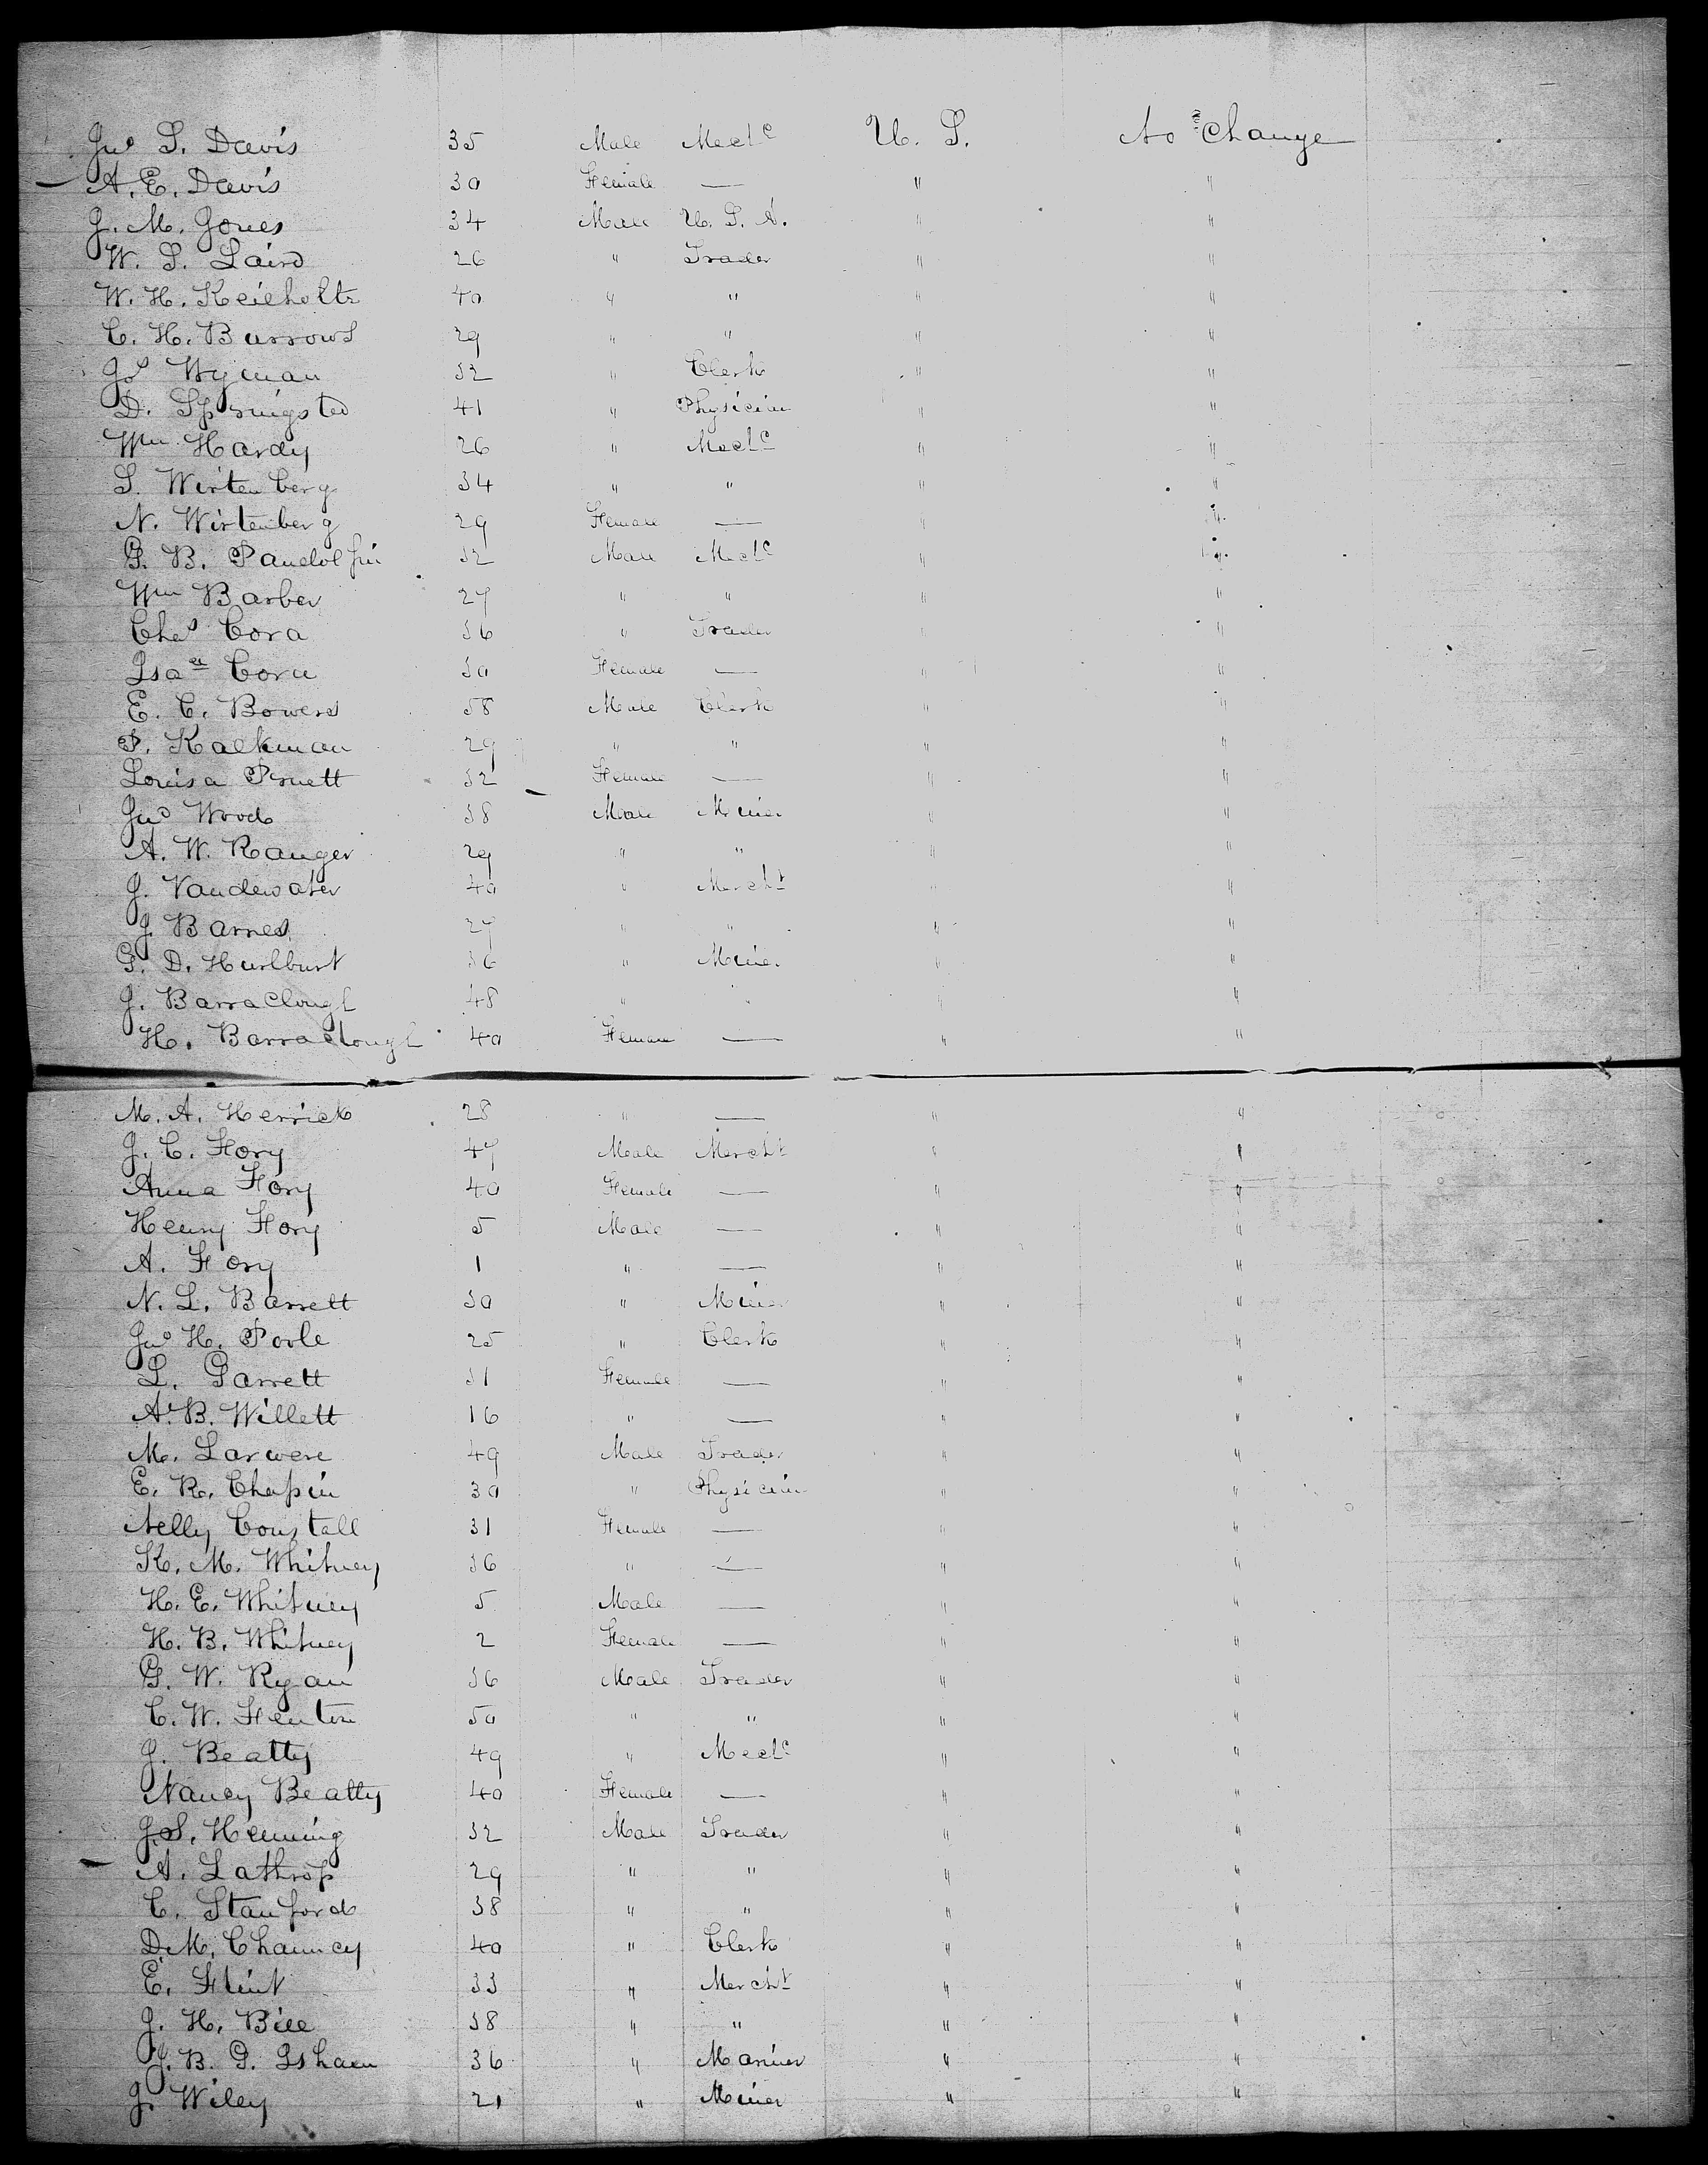 Jno S. Davis 35 Male Mechc U. S. No Change
A. E. Davis 30 Female — " "
J. M. Jones 34 Male U. S. A. " "
W. S. Laird 26 " Trader " "
W. H. Keieholtz 40 " " " "
C. H. Burrows 29 " " " "
Js Wyman 32 " Clerk " "
D. Springsted 41 " Physician " "
Wm Hardy 26 " Mechc " "
S. Wirtenberg 34 " " " "
N. Wirtenberg 29 Female — " "
G. B. Pandolfini 32 Male Mechc " "
Wm Barber 27 " " " "
Chas Cora 36 " Trader " "
Isaa Cora 30 Female — " "
E. C. Bowers 38 Male Clerk " "
P. Kalkman 29 " " " "
Louisa Pruett 32 Female — " "
Jno Wood 38 Male Miner " "
A. W. Ranger 29 " " " "
J. Vandewater 40 " Mercht " "
J. Barnes 27 " " " "
G. D. Hurlburt 36 " Miner " "
J. Barraclough 48 " " " "
H. Barraclough 40 Female — " "
M. A. Herrick 28 " — " "
J. C. Hory 47 Male Mercht " "
Anna Hory 40 Female — " "
Henry Hory 5 Male — " "
A. Hory 1 " — " "
N. L. Barrett 30 " Miner " "
Jno H. Poole 25 " Clerk " "
L. Garrett 31 Female — " "
A. B. Willett 16 " — " "
M. Larwere 49 Male Trader " "
E. R. Chapin 30 " Physician " "
Nelly Constall 31 Female — " "
K. M. Whitney 36 " — " "
H. E. Whitney 5 Male — " "
H. B. Whitney 2 Female — " "
G. W. Ryan 36 Male Trader " "
C. W. Fenton 50 " " " "
J. Beatty 49 " Mechc " "
Nancy Beatty 40 Female — " "
J. S. Henning 32 Male Trader " "
A. Lathrop 29 " " " "
C. Stanford 38 " " " "
D. M. Chauncey 40 " Clerk " "
E. Flint 33 " Mercht " "
J. H. Bill 38 " " " "
J. B. G. Isham 36 " Mariner " "
J. Wiley 21 " Miner " "